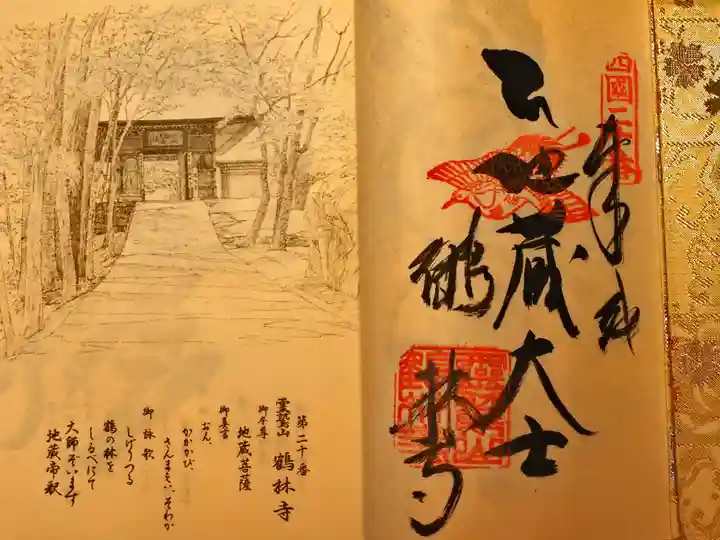 四國二十番
奉納
地蔵大士
鶴林寺
第二十番
霊鷲山 鶴林寺
御本尊
地蔵菩薩
御真言
おん
かかかび
さんまえい そわか
御詠歌
しげりつる
鶴の林を
しるべにて
大師ぞいます
地蔵帝釈